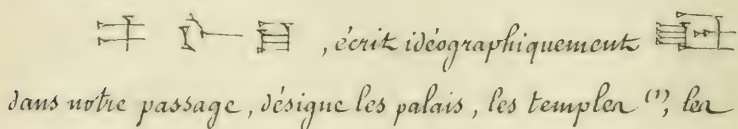 , écrit idéographiquement
dans notre passage, désigne les palais, les temples ⁽¹⁾, les